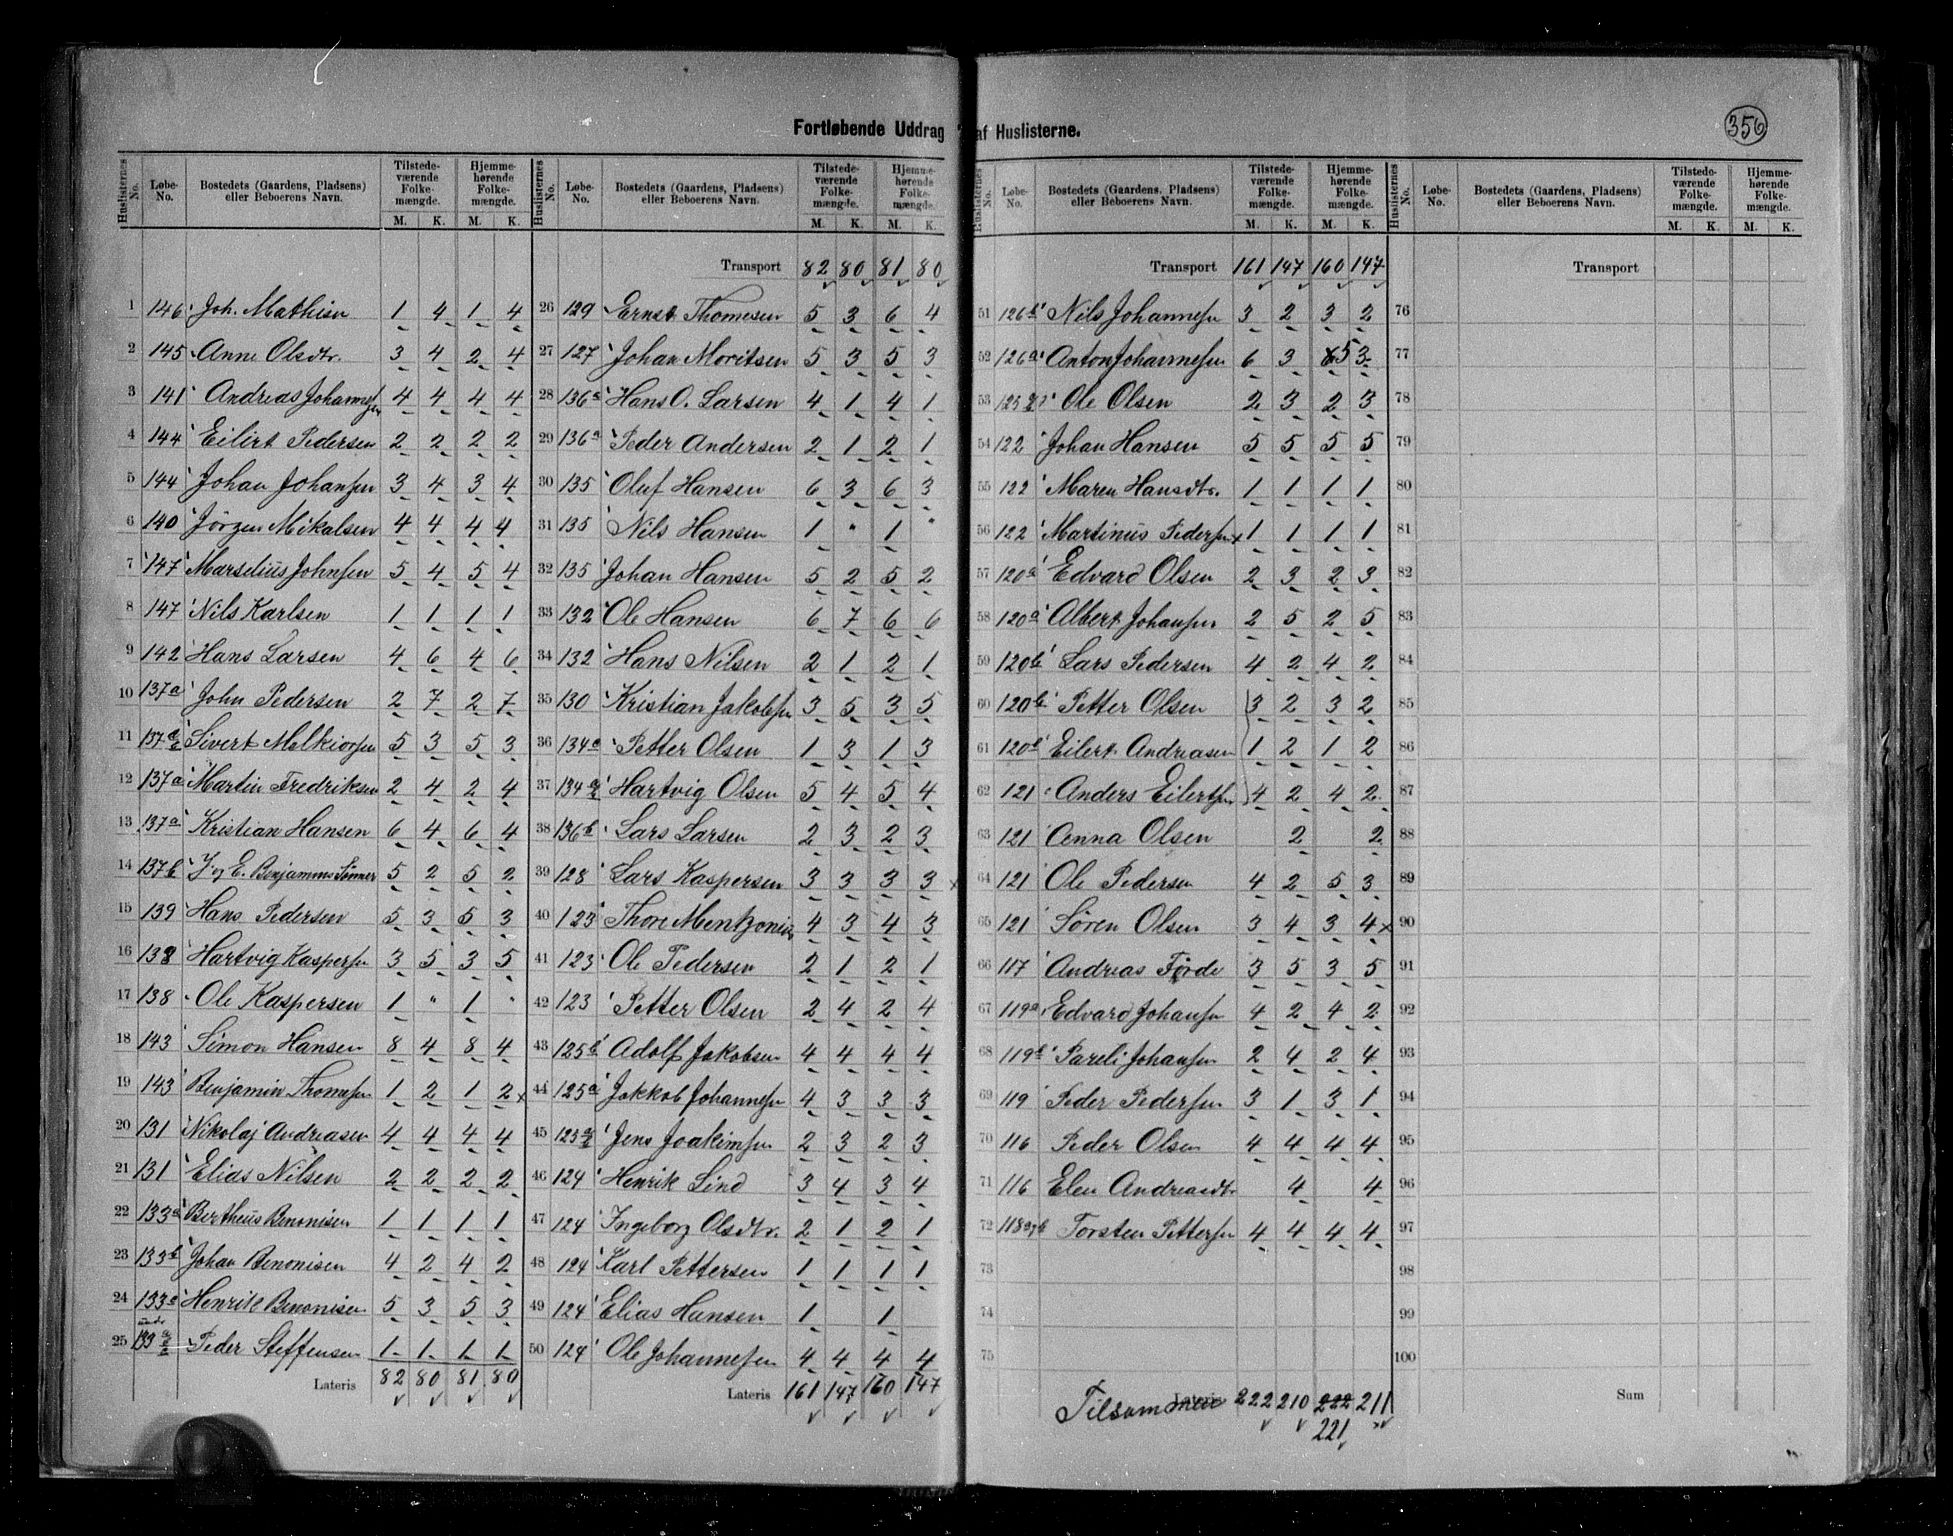 Fortløbende Uddrag af Huslisterne.
356
Huslisternes No. Løbe-No. Bostedets (Gaardens, Pladsens) eller Beboerens Navn. Tilstedeværende Folkemængde. M. K. Hjemmehørende Folkemængde. M. K.
1 146 Joh. Mathisn 1 4 1 4
2 145 Anne Olsdtr. 3 4 2 4
3 141 Andreas Johannesen 4 4 4 4
4 144 Eilirt Pedersen 2 2 2 2
5 144 Johan Johansen 3 4 3 4
6 140 Jörgen Mikalsen 4 4 4 4
7 147 Marselius Johnsen 5 4 5 4
8 147 Nils Karlsen 1 1 1 1
9 142 Hans Larsen 4 6 4 6
10 137a John Pedersen 2 7 2 7
11 137a/2 Sivert Melkiorsen 5 3 5 3
12 137a Martin Fredriksen 2 4 2 4
13 137a Kristian Hansen 6 4 6 4
14 137b J. og E. Benjamins Sønner 5 2 5 2
15 139 Hans Pedersen 5 3 5 3
16 138 Hartvig Kaspersen 3 5 3 5
17 138 Ole Kaspersen 1 " 1 "
18 143 Simon Hansen 8 4 8 4
19 143 Benjamin Thomesen 1 2 1 2 x
20 131 Nikolaj Andreasen 4 4 4 4
21 131 Elias Nilsen 2 2 2 2
22 133a Bertheus Benonisen 1 1 1 1
23 133b Johan Benonisen 4 2 4 2
24 133a Henrik Benonisen 5 3 5 3
25 133 Peder Steffensen 1 1 1 1
Lateris 82 80 81 80
Huslisternes No. Løbe-No. Bostedets (Gaardens, Pladsens) eller Beboerens Navn. Tilstedeværende Folkemængde. M. K. Hjemmehørende Folkemængde. M. K.
Transport 82 80 81 80
26 129 Ernst Thomesen 5 3 6 4
27 127 Johan Moritsen 5 3 5 3
28 136a Hans O. Larsen 4 1 4 1
29 136a Peder Andersen 2 1 2 1
30 135 Oluf Hansen 6 3 6 3
31 135 Nils Hansen 1 " 1 "
32 135 Johan Hansen 5 2 5 2
33 132 Ole Hansen 6 7 6 6
34 132 Hans Nilsen 2 1 2 1
35 130 Kristian Jakobsen 3 5 3 5
36 134a Petter Olsen 1 3 1 3
37 134a/2 Hartvig Olsen 5 4 5 4
38 136b Lars Larsen 2 3 2 3
39 128 Lars Kaspersen 3 3 3 3 x
40 123 Thore Mentzonius 4 3 4 3
41 123 Ole Pedersen 2 1 2 1
42 123 Petter Olsen 2 4 2 4
43 125b Adolf Jakobsen 4 4 4 4
44 125a Jakkob Johannesen 4 3 3 3
45 125a/2 Jens Joakimsen 2 3 2 3
46 124 Henrik Lind 3 4 3 4
47 124 Ingeborg Olsdtr. 2 1 2 1
48 124 Karl Pettersen 1 1 1 1
49 124 Elias Hansen 1 1
50 124 Ole Johannesen 4 4 4 4
Lateris 161 147 160 147
Huslisternes No. Løbe-No. Bostedets (Gaardens, Pladsens) eller Beboerens Navn. Tilstedeværende Folkemængde. M. K. Hjemmehørende Folkemængde. M. K.
Transport 161 147 160 147
51 126b Nils Johannesen 3 2 3 2
52 126a Anton Johannesen 6 3 6 5 3
53 125 Ole Olsen 2 3 2 3
54 122 Johan Hansen 5 5 5 5
55 122 Maren Hansdtr. 1 1 1 1
56 122 Martinus Pedersen x 1 1 1 1
57 120a Edvard Olsen 2 3 2 3
58 120a Albert Johansen 2 5 2 5
59 120b Lars Pedersen 4 2 4 2
60 120b Petter Olsen 3 2 3 2
61 120b Eilert Andreasen 1 2 1 2
62 121 Anders Eilertsen 4 2 4 2
63 121 Anna Olsen 2 2
64 121 Ole Pedersen 4 2 5 3
65 121 Sören Olsen 3 4 3 4 x
66 117 Andreas Förde 3 5 3 5
67 119a Edvard Johansen 4 2 4 2
68 119b Pareli Johansen 2 4 2 4
69 119 Peder Pedersen 3 1 3 1
70 116 Peder Olsen 4 4 4 4
71 116 Elen Andreasdtr 4 4
72 118a&b Torsten Pettersen 4 4 4 4
73
74
75
Tilsammen Lateris 222 210 222 211
221
Huslisternes No. Løbe-No. Bostedets (Gaardens, Pladsens) eller Beboerens Navn. Tilstedeværende Folkemængde. M. K. Hjemmehørende Folkemængde. M. K.
Transport
76
77
78
79
80
81
82
83
84
85
86
87
88
89
90
91
92
93
94
95
96
97
98
99
100
Sum